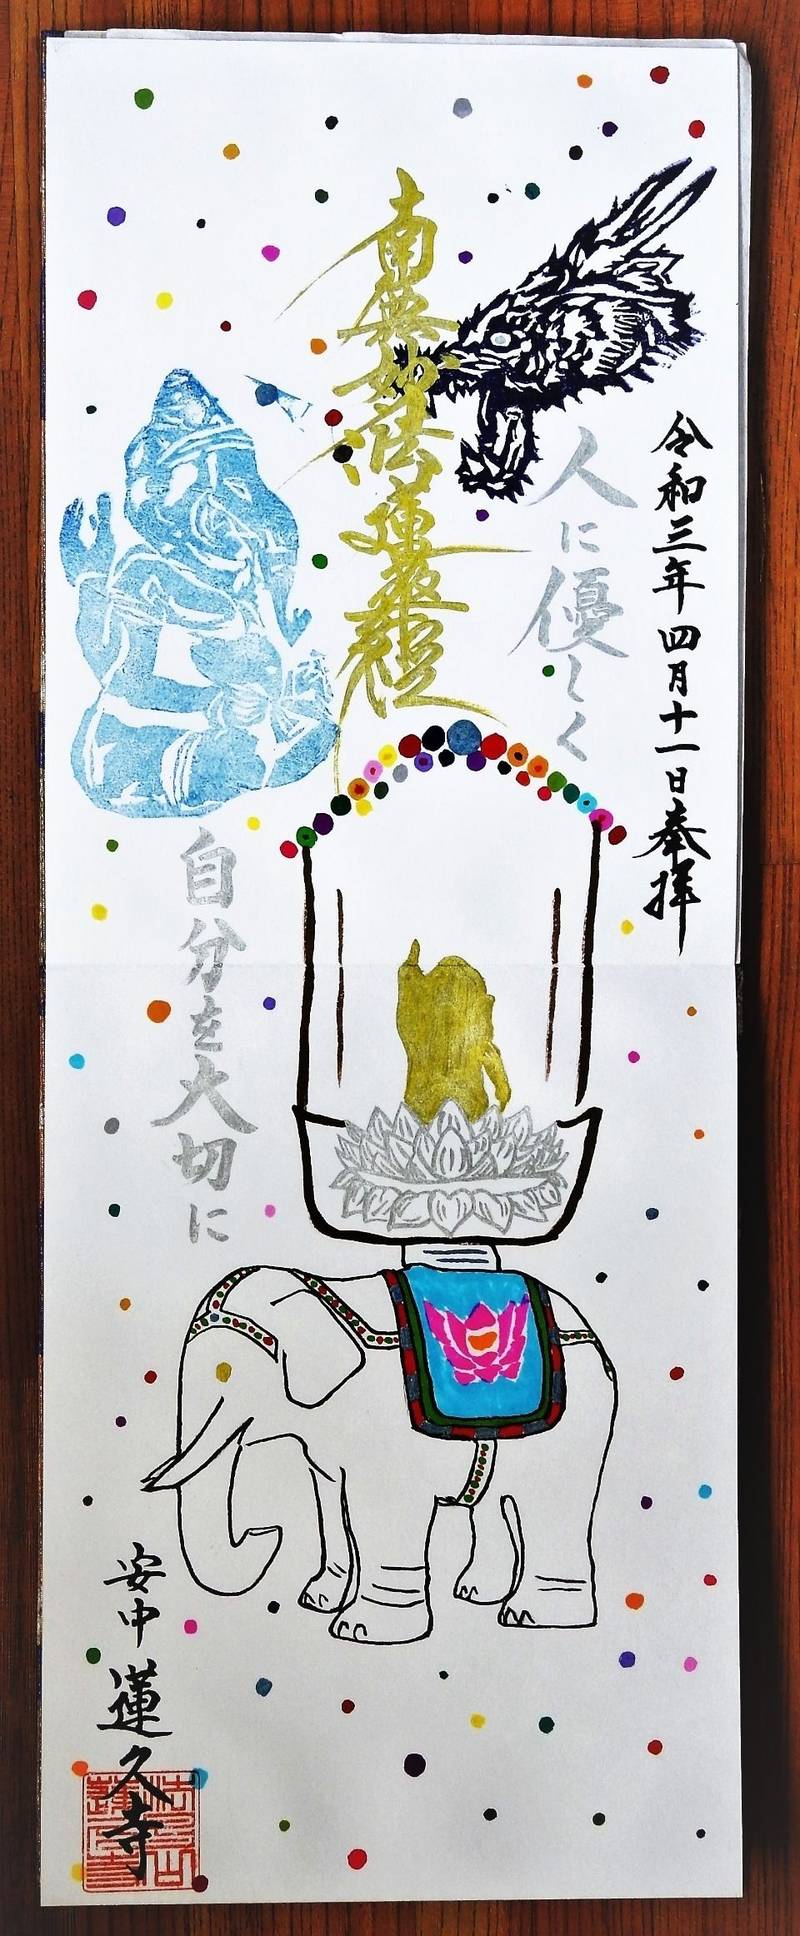 令和三年四月十一日奉拝
人に優しく
南無妙法蓮華経
自分を大切に
安中蓮久寺